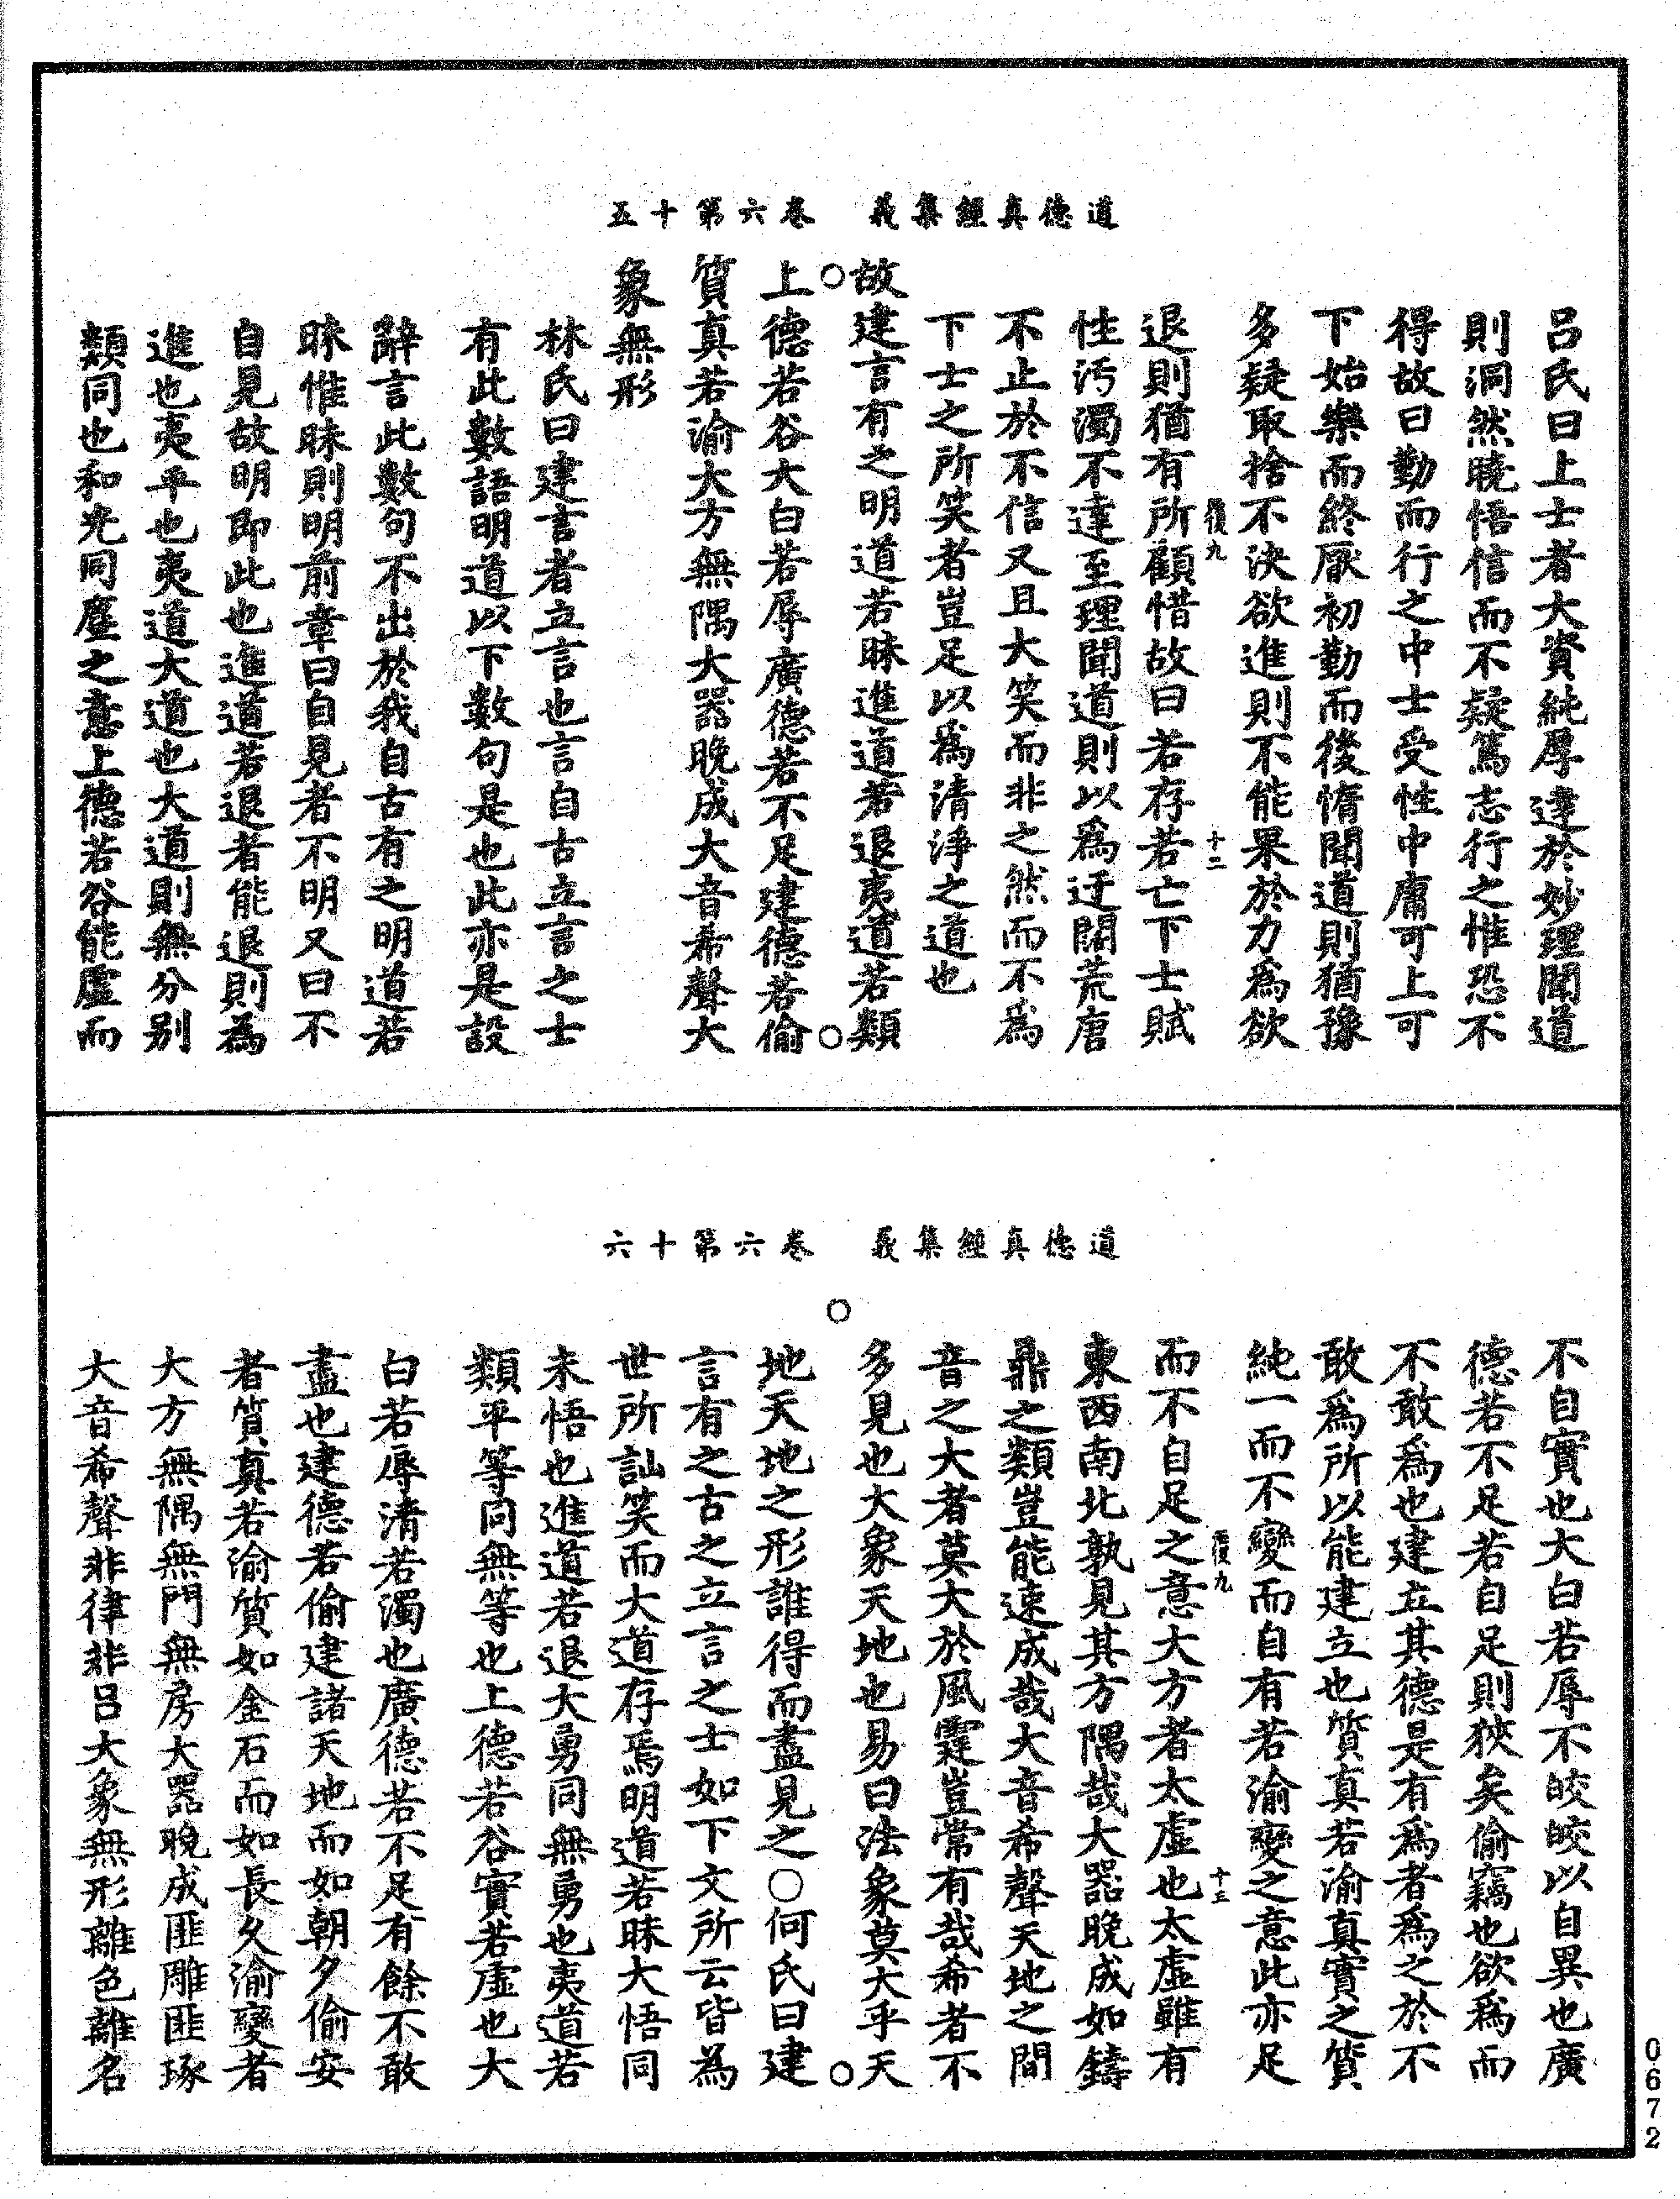 道德真經集義　卷六第十五
呂氏曰上士者大資純厚達於妙理聞道
則洞然曉悟信而不疑篤志行之惟恐不
得故曰勤而行之中士受性中庸可上可
下始樂而終厭初勤而後惰聞道則猶豫
多疑取捨不決欲進則不能果於力為欲
復九　十二
退則猶有所顧惜故曰若存若亡下士賦
性汚濁不達至理聞道則以爲迂闊荒唐
不止於不信又且大笑而非之然而不爲
下士之所笑者豈足以爲清淨之道也
故建言有之明道若昧進道若退夷道若類
上德若谷大白若辱廣德若不足建德若偷
質真若渝大方無隅大器晚成大音希聲大
象無形
林氏曰建言者立言也言自古立言之士
有此數語明道以下數句是也此亦是設
辭言此數句不出於我自古有之明道若
昧惟昧則明前章曰自見者不明又曰不
自見故明即此也進道若退者能退則為
進也夷平也夷道大道也大道則無分别
類同也和光同塵之意上德若谷能虛而
道德真經集義　卷六第十六
不自實也大白若辱不皎皎以自異也廣
德若不足若自足則狹矣偷竊也欲爲而
不敢爲也建立其德是有爲者爲之於不
敢爲所以能建立也質真若渝真實之質
純一而不變而自有若渝變之意此亦足
復九　十三
而不自足之意大方者太虛也太虛雖有
東西南北孰見其方隅哉大器晚成如鑄
鼎之類豈能速成哉大音希聲天地之間
音之大者莫大於風霆豈常有哉希者不
多見也大象天地也易曰法象莫大乎天
地天地之形誰得而盡見之○何氏曰建
言有之古之立言之士如下文所云皆為
世所訕笑而大道存焉明道若昧大悟同
未悟也進道若退大勇同無勇也夷道若
類平等同無等也上德若谷實若虛也大
白若辱清若濁也廣德若不足有餘不敢
盡也建德若偷建諸天地而如朝夕偷安
者質真若渝質如金石而如長久渝變者
大方無隅無門無房大器晚成匪雕匪琢
大音希聲非律非呂大象無形離色離名
0672